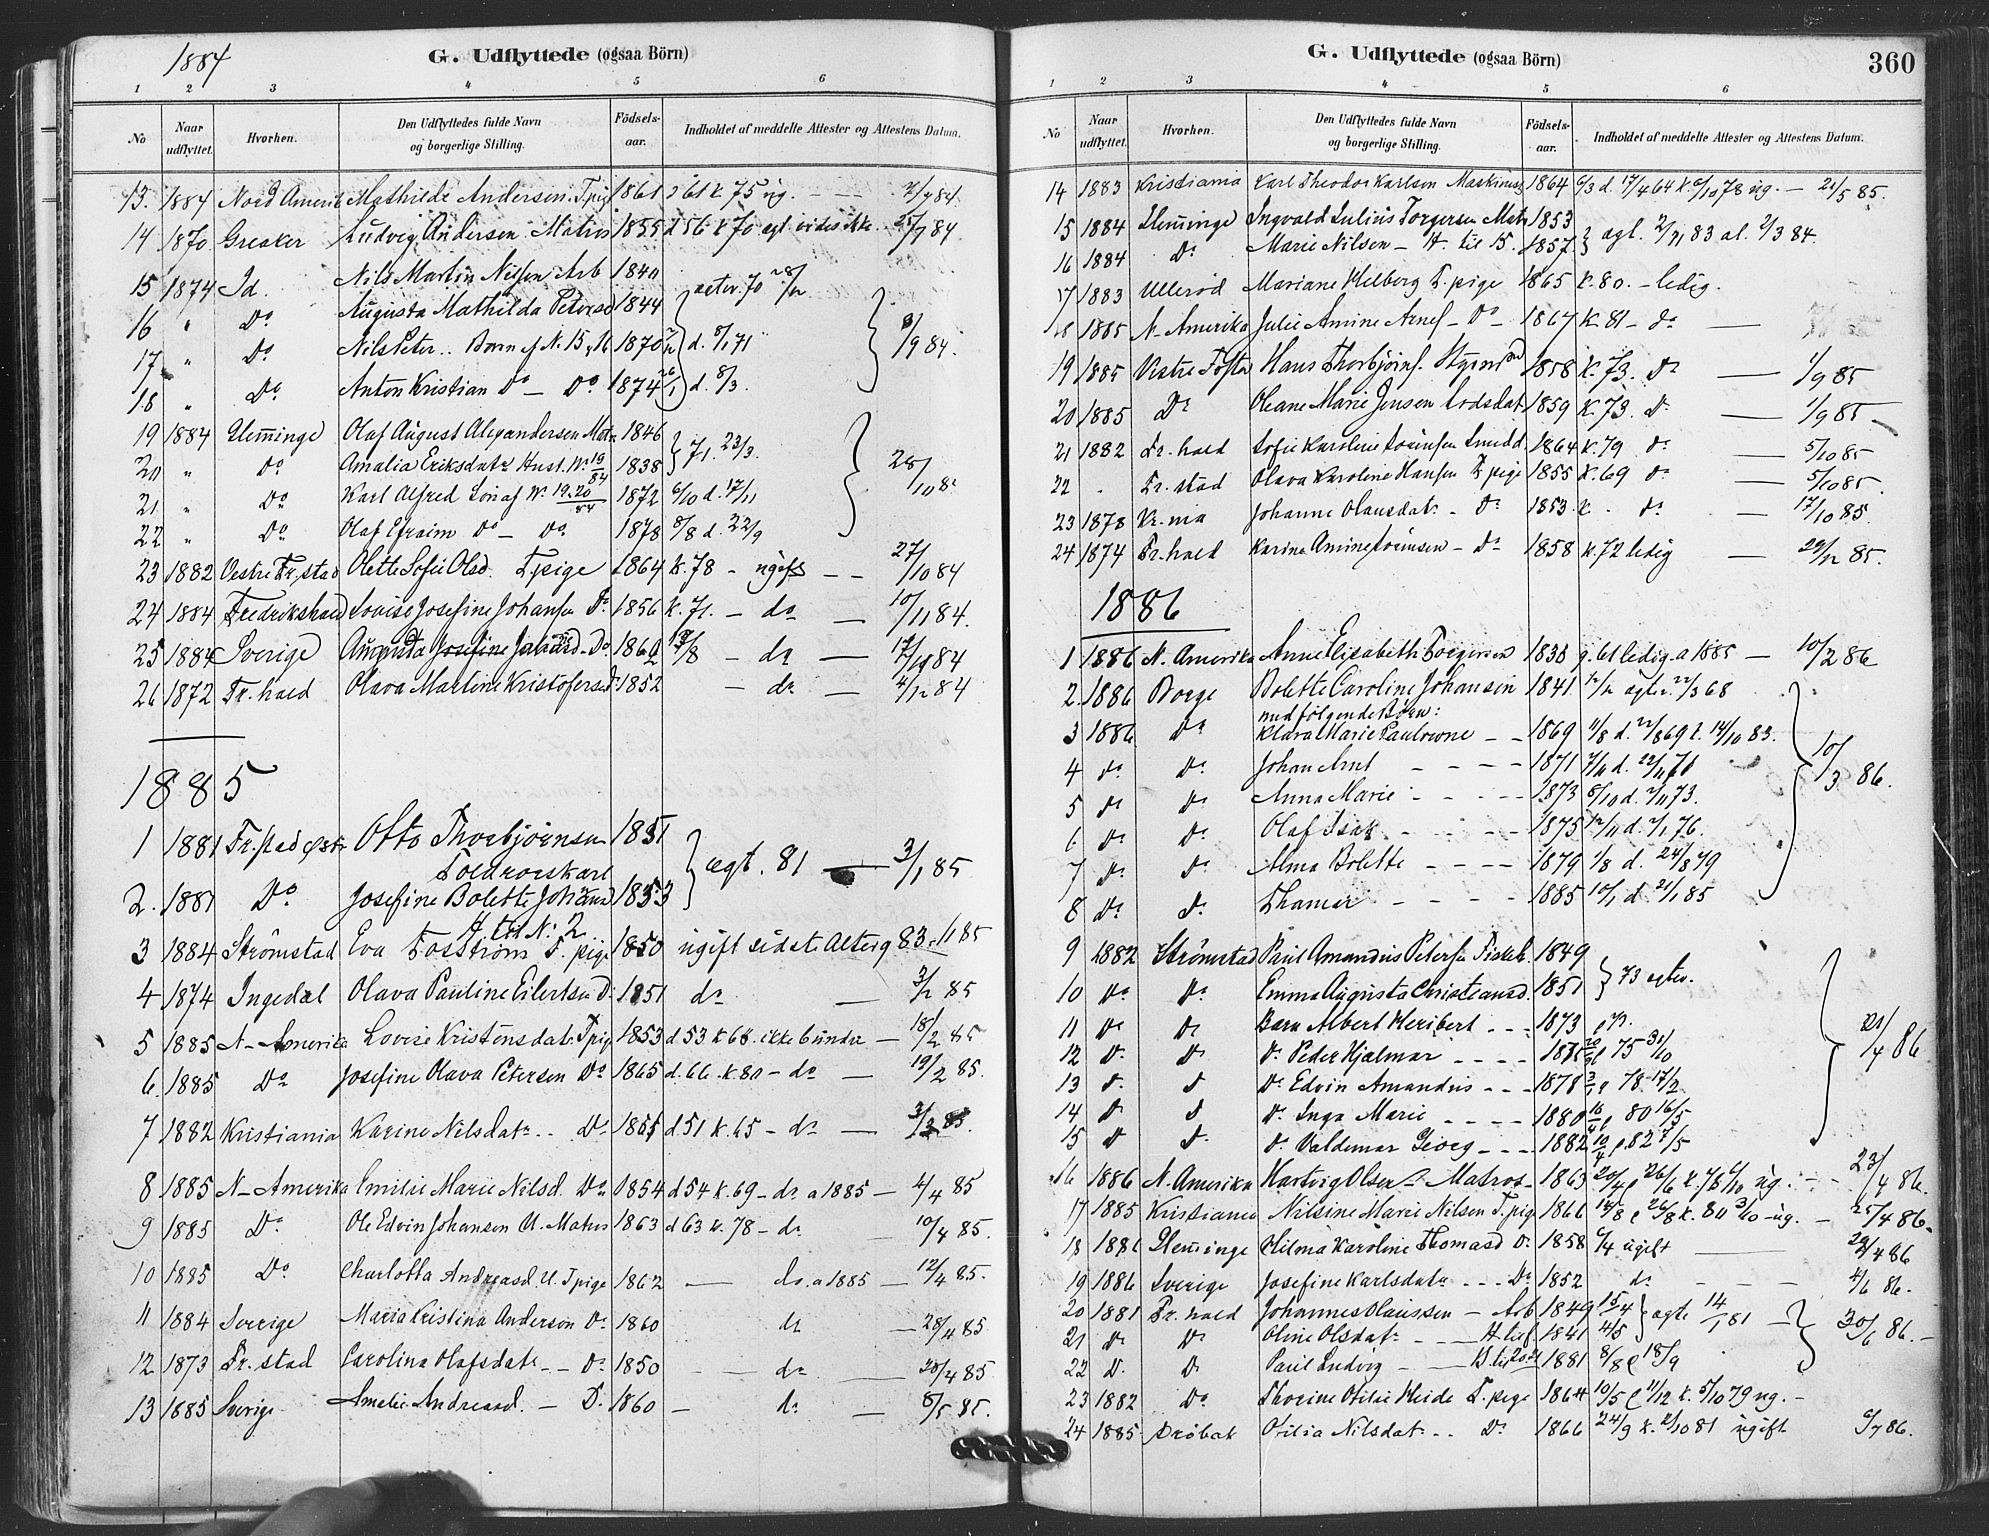 1884
G. Udflyttede (ogsaa Börn)
1 2 3 4 5 6
No Naar udflyttet. Hvorhen. Den Udflyttedes fulde Navn og borgerlige Stilling. Födsels-aar. Indholdet af meddelte Attester og Attestens Datum.
13. 1884 Nord Amerik Mathilde Andersen. T.pig 1861 61 k 75 ug. — 84.
14 1870 Greaker Ludvig Andersen Matros 1855 d 56 k 70 egt. vides ikke. 25/7 84
15 1874 Id. Nils Martin Nilsen Arb 1840 70 28/12
16 " Do Augusta Mathilda Peters 1844
17 " Do Nils Peter .. Børn af N. 15, 16 1870 d. 8/1 71 3/9 84.
18 " Do Anton Kristian Do — Do 1874 d. 8/3.
19 1884 Glemminge Olaf August Alexandersen Mat. 1846 71. 23/3.
20 " Do Amalia Eriksdatr Hust. No 19/84 1838 28/10 8
21 " Do Karl Alfred Søn af No 19.20/84 1872 6/10 d. 17/11
22 " Do Olaf Efraim Do — Do 1878 8/8 d. 22/9
23 1882 Vestre Fr.stad Olette Sofie Olsd. T.pige 1864 k. 78 - ugift — 27/10 84
24 1884 Fredrikshald Lovise Josefine Johansen Do 1856 k. 71. — do — 10/11 84.
25 1884 Sverige Augusta Josefine Do 1862 /8 — do — 17/11 84
26 1872 Fr. hald Olava Martine Kristofersd 1852 — do — 4/12 84
1885
1 1881 Fr.stad øst. Otto Thorbjørnsen 1851
Toldroerskarl
ægt. 81 — 3/1 85
2. 1881 Do Josefine Bolette Johans 1853
H. til N: 2
3 1884 Strømstad Eva Fosstrøm T. pige 1850 ugift sidste Alterg 83 /1 85
4 1874 Ingedal Olava Pauline Eilertsen D. 1851 do — 3/2 85
5 1885 N-Amerika Lovise Kristensdatr T.pig 1853 d 53 k 68. ikke bunden — 18/2 85
6. 1885 Do Josefine Olava Petersen Do 1865 d. 66. k 80 - do — 19/2 85.
7 1882 Kristiania Karine Nilsdatr .. D. 1851 d 51 k. 65 - do — 3/3 85.
8 1885 N-Amerika Emilie Marie Nilsd. Do 1854 d 54 k. 69 - do. a 1885 — 4/4 85
9 1885 Do Ole Edvin Johansen U. Matros 1863 d 63 k. 78 - do — 10/4 85.
10 1885 Do Charlotta Andreasd. U. T.pige 1862 — do. a 1885 — 12/4 85.
11 1884 Sverige Maria Kristina Anderson Do 1860 do — 28/4 85
12 1873 Fr. stad Carolina Olafsdatr — Do 1850 — do — 28/4 85
13 1885 Sverige Amalie Andreasd. — D. 1860 — do — 8/5 85.
G. Udflyttede (ogsaa Börn) 360
1 2 3 4 5 6
No Naar udflyttet. Hvorhen. Den Udflyttedes fulde Navn og borgerlige Stilling. Födsels-aar. Indholdet af meddelte Attester og Attestens Datum.
14 1883 Kristiania Karl Theodor Karlsen 1864 6/3 d. 17/4 64 k. 6/10 78 ug. — 21/5 85.
15 1884 Glemminge Ingvald Julius Torgersen Mat. 1853
16 1884 Do Marie Nilsen — H. til 15. 1857 } ægt. 83 al. 2/3 84.
17 1883 Ullerød Mariane Melberg T. pige 1865 k. 80. - ledig.
18 1885 N. Amerika Julie Amine Arnes — Do 1867 k 81 - do —
19 1885 Vestre Toften Hans Thorbjørns. Styrmd 1858 k. 73. Do — 1/9 85
20 1885 Do Oleane Marie Jensen Lodsdat. 1859 k. 73. Do — 1/9 85 —
21 1882 Fr. hald Sofie Karoline 1864 k. 79 do — 5/10 85
22 . Fr. stad Olava Karoline Hansen T. pige 1855 k. 69 do — 5/10 85.
23 1878 Kr. nia Johanne Olausdatr - Do 1853 k. . do — 17/10 85.
24 1874 Fr. hald Karine Amine - Do 1858 k. 72 ledig — 29/12 85.
1886
1 1886 N. Amerika Anne Elisabeth Torgersen 1838 61 ledig. a 1885 — 10/2 86
2. 1886 Borge Bolette Caroline Johansen 1841 12/12 egtev. 22/3 68
medfølgende Børn:
3 1886 Do Klara Marie Paulowne — 1869 11/8 d. 22/8 69 k. 14/10 83.
4 do Do Johan Arnt — 1871 7/11 d. 22/11 71 10/3 86.
5 do Do Anna Marie - 1873 8/10 d. 2/11 73.
6 Do Do Olaf Isak - 1875 12/11 d. 2/1 76.
7 Do Do Alma Bolette - 1879 1/8 d. 24/8 79
8 Do Do Thamar — 1885 10/1 d 21/1 85
9 1882 Strømstad Paul Amandus Petersen Fiskeh. 1849
10 Do Do Emma Augusta Christiansd. 1851 } 73 egtev.
11 Do Do Barn Albert Heribert - 1873
12 Do Do Do Peder Hjalmar — 1875 75 31/10 21/4 86
13 Do Do Do Edvin Amandus - 1878 78 17/2
14 Do Do Do Inga Marie — 1880 80 16/5
15 Do Do Do Valdemar Georg — 1882 10/4 82 7/5
16 1886 N. Amerika Hartvig Olsen - Matros - 1863 20/4 26/6 k. 78 ug. — 23/4 86.
17 1885 Kristiania Nilsine Marie Nilsen T. pig 1866 14/8 26/8 k. 80 3/10 ug. — 25/4 86.
18 1886 Glemminge Hilma Karoline Thomasd Do 1858 6/4 ugift — 29/4 86
19 1886 Sverige Josefine Karlsdatr — Do 1852 do — 4/6 86.
20 1881 Fr. hald Johannes Olaussen — Arb 1849 15/4 egte 14/1 81 — 30/6 86.
21 Do Do Oline Olsdatr — H. til 1841 4/5
22 D. D. Paul Ludvig — B. til 20.21 1881 8/8 18/9
23 1882 Do Thorine Otilie Heide T. pige 1864 10/5 11/12 k. 5/10 79 ug. -
24 1885 Drøbak Otilia Nilsdatr .. Do 1866 24/9 k. 2/10 81 ugift 6/7 86.